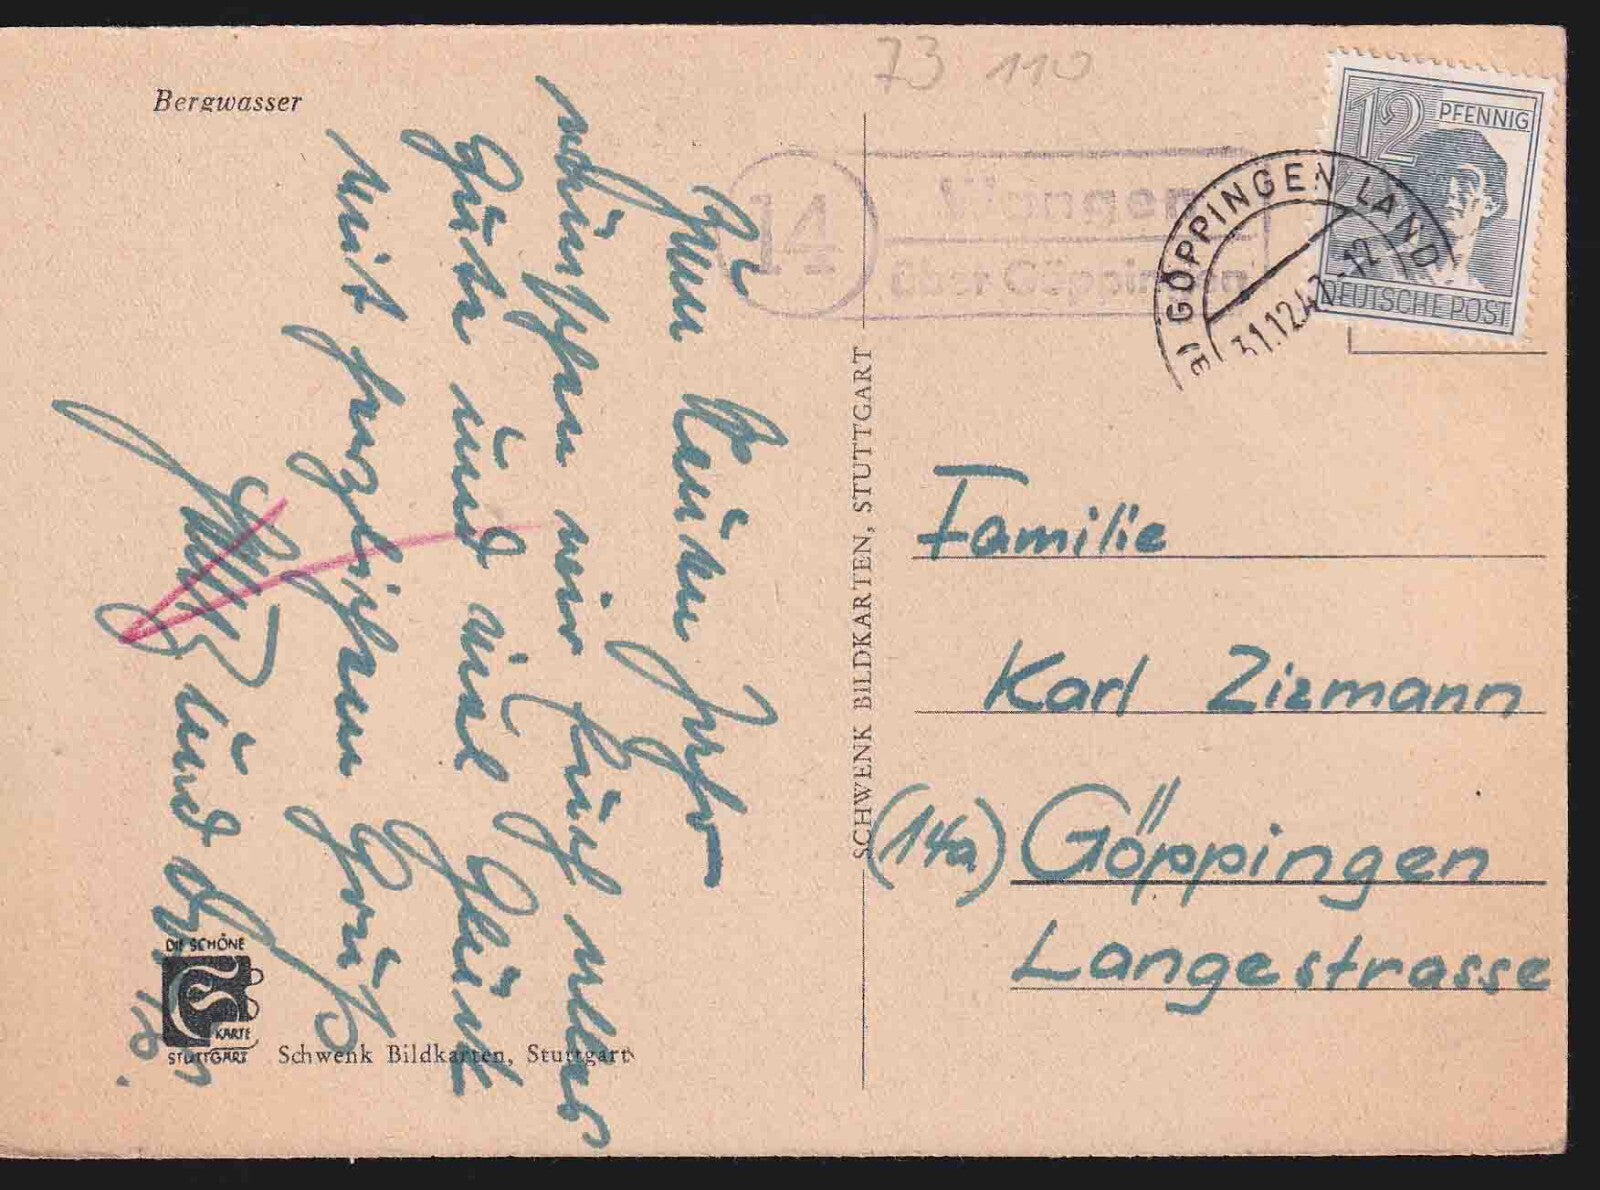 Bergwasser
73 110
Zum Neuen Jahr
wünschen wir Euch alles
Gute und viel Glück
mit herzlichem Gruß
und
14
Wangen
über Göppingen
GÖPPINGEN LAND
31.12.47-12
12 PFENNIG
DEUTSCHE POST
SCHWENK BILDKARTEN, STUTTGART
Familie
Karl Zizmann
(14a) Göppingen
Langestrasse
DIE SCHÖNE
KARTE
STUTTGART
Schwenk Bildkarten, Stuttgart